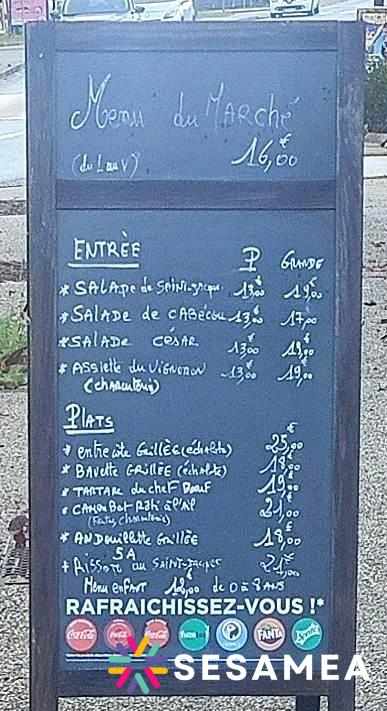 Menu du Marché
(du L au V) 16,00€
ENTRÉE P GRANDE
* SALADE de SAINT-Jacques 13,00€ 19,00€
* SALADE de CABÉCOU 13,00€ 17,00€
* SALADE CÉSAR 13,00€
* ASSIETTE du VIGNERON 13,00€ 19,00€
(charcuterie)
PLATS
* entrecôte Grillée (échalote) 25,00€
* BAVETTE GRILLÉE (échalote) 18,00€
* TARTARE du chef Boeuf 19,00€
* CAMEMBERT Rôti à l'Ail 21,00€
(Frites, Charcuterie)
* ANDOUILLETTE GRILLÉE 18,00€
5A
SAINT-Jacques 21,00€
Menu enfant de 0 à 8 ANS
RAFRAICHISSEZ-VOUS !*
Coca-Cola Coca-Cola Coca-Cola FANTA Sprite
SESAMEA